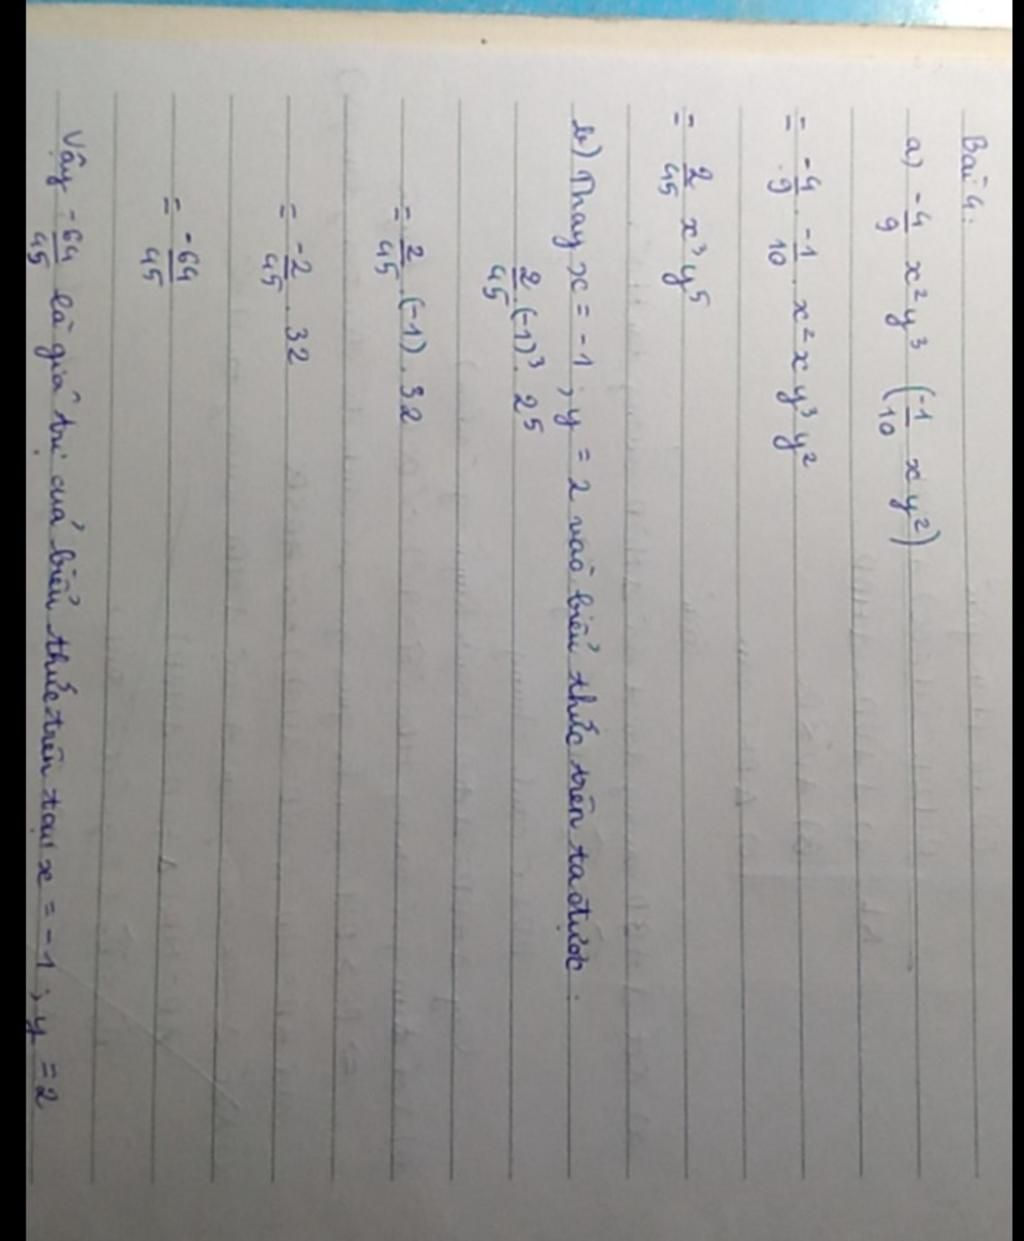 Bài 4:
a) -4/9 x²y³ (-1/10 xy²)
= -4/9 . -1/10 . x² x y³ y²
= 2/45 x³ y⁵
b) Thay x = -1 ; y = 2 vào biểu thức trên ta được :
2/45 . (-1)³ . 2⁵
= 2/45 . (-1) . 32
= -2/45 . 32
= -64/45
Vậy -64/45 là giá trị của biểu thức trên tại x = -1 ; y = 2